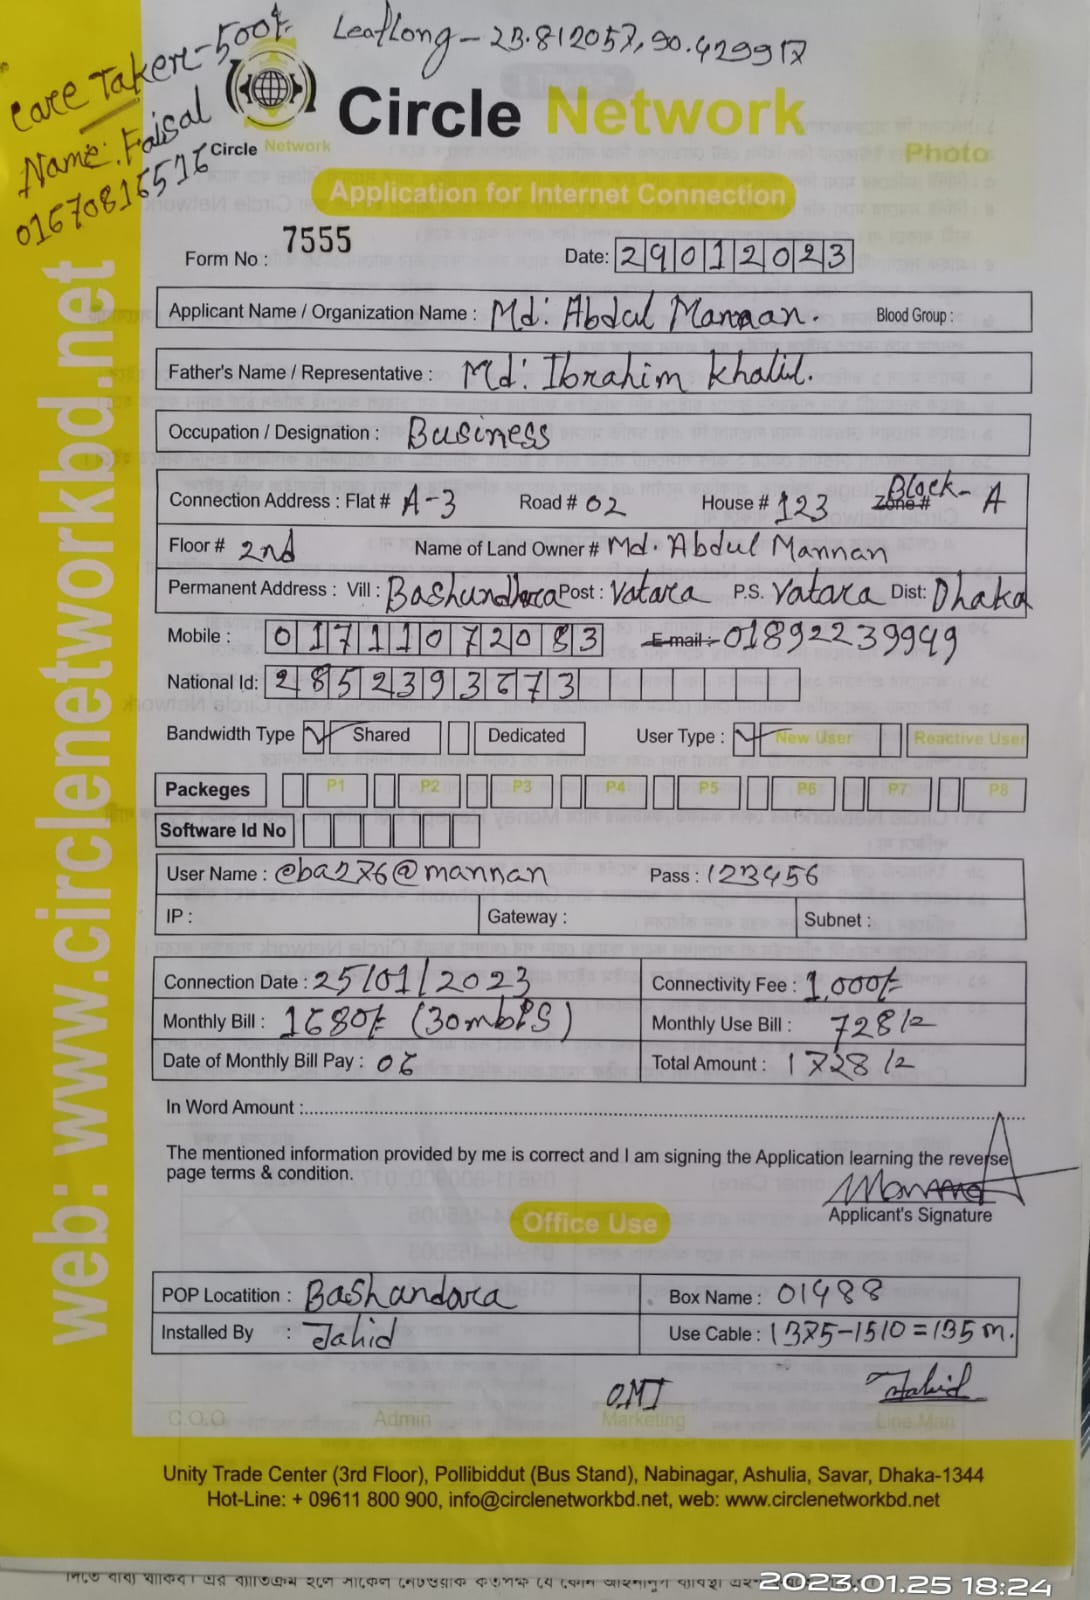 Care Taker-500/- Leatlong - 23.812057, 90.429917
Name: Faisal
01670816516
Circle Network
Circle Network
Photo
Application for Internet Connection
Form No : 7555 Date: 29012023
Applicant Name / Organization Name : Md: Abdul Mannan. Blood Group :
Father's Name / Representative : Md: Ibrahim Khalil.
Occupation / Designation : Business
Connection Address : Flat # A-3 Road # 02 House # 123 Zone # Block- A
Floor # 2nd Name of Land Owner # Md. Abdul Mannan
Permanent Address : Vill : Bashundhara Post : Vatara P.S. Vatara Dist: Dhaka
Mobile : 01711072083 E-mail : 01892239949
National Id: 2852393673
Bandwidth Type Shared Dedicated User Type : New User Reactive User
Packeges P1 P2 P3 P4 P5 P6 P7 P8
Software Id No
User Name : @ba276@mannan Pass : 123456
IP : Gateway : Subnet :
Connection Date : 25/01/2023 Connectivity Fee : 1,000/-
Monthly Bill : 1680/- (30mbPS) Monthly Use Bill : 728/=
Date of Monthly Bill Pay : 06 Total Amount : 1728/=
In Word Amount :
The mentioned information provided by me is correct and I am signing the Application learning the reverse
page terms & condition.
Mannan
Applicant's Signature
Office Use
POP Locatition : Bashandara Box Name : 01488
Installed By : Jahid Use Cable : 1375-1510=135m.
OMI Jahid
C.O.O Admin Marketing Line Man
Unity Trade Center (3rd Floor), Pollibiddut (Bus Stand), Nabinagar, Ashulia, Savar, Dhaka-1344
Hot-Line: + 09611 800 900, info@circlenetworkbd.net, web: www.circlenetworkbd.net
web: www.circlenetworkbd.net
2023.01.25 18:24